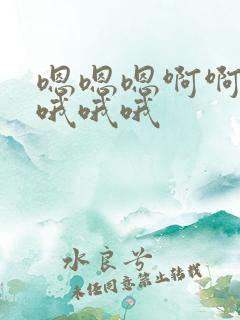 嗯嗯嗯啊啊
哦哦哦
水良兮
未经同意禁止转载